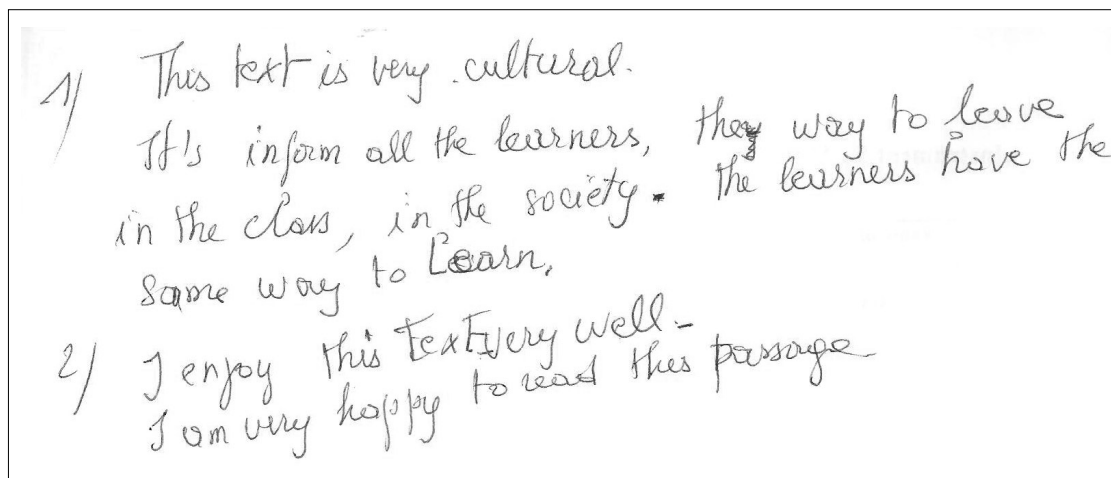 1) This text is very cultural.
It's inform all the learners, they way to leave
in the class, in the society. The learners have the
same way to Learn.
2) I enjoy this Text very well -
I am very happy to read this passage